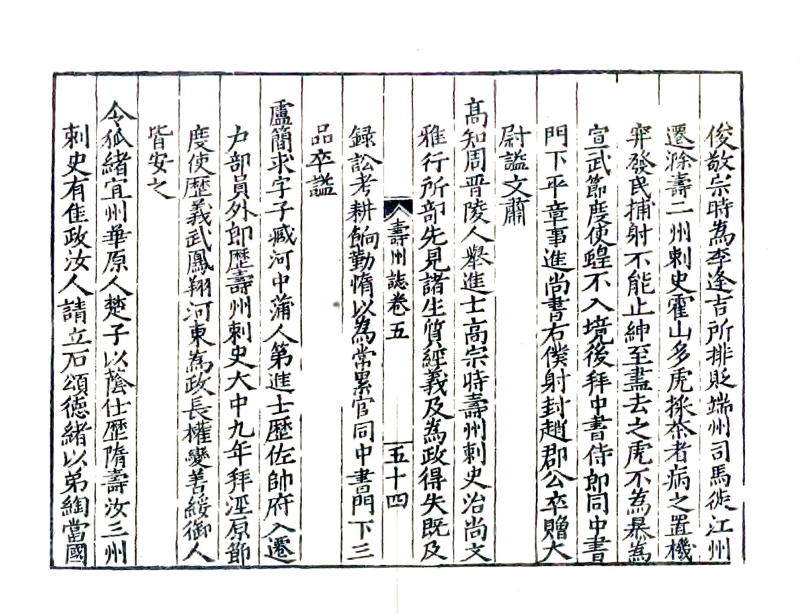 俊敬宗時為李逢吉所排貶端州司馬徙江州
遷滁壽二州刺史霍山多虎採茶者病之置機
穽發民捕射不能止紳至盡去之虎不為暴為
宣武節度使蝗不入境後拜中書侍郎同中書
門下平章事進尚書右僕射封趙郡公卒贈大
尉謚文肅
高知周晋陵人舉進士高宗時壽州刺史治尚文
雅行所部先見諸生質經義及為政得失既及
壽州誌卷五
五十四
録訟考耕餉勤惰以為常累官同中書門下三
品卒謚
盧簡求字子臧河中蒲人第進士歴佐帥府入遷
户部員外郎歴壽州刺史大中九年拜涇原節
度使歴義武鳳翔河東為政長權變善綏御人
皆安之
令狐緒宜州華原人楚子以蔭仕歴隋壽汝三州
刺史有佳政汝人請立石頌德緒以弟綯當國